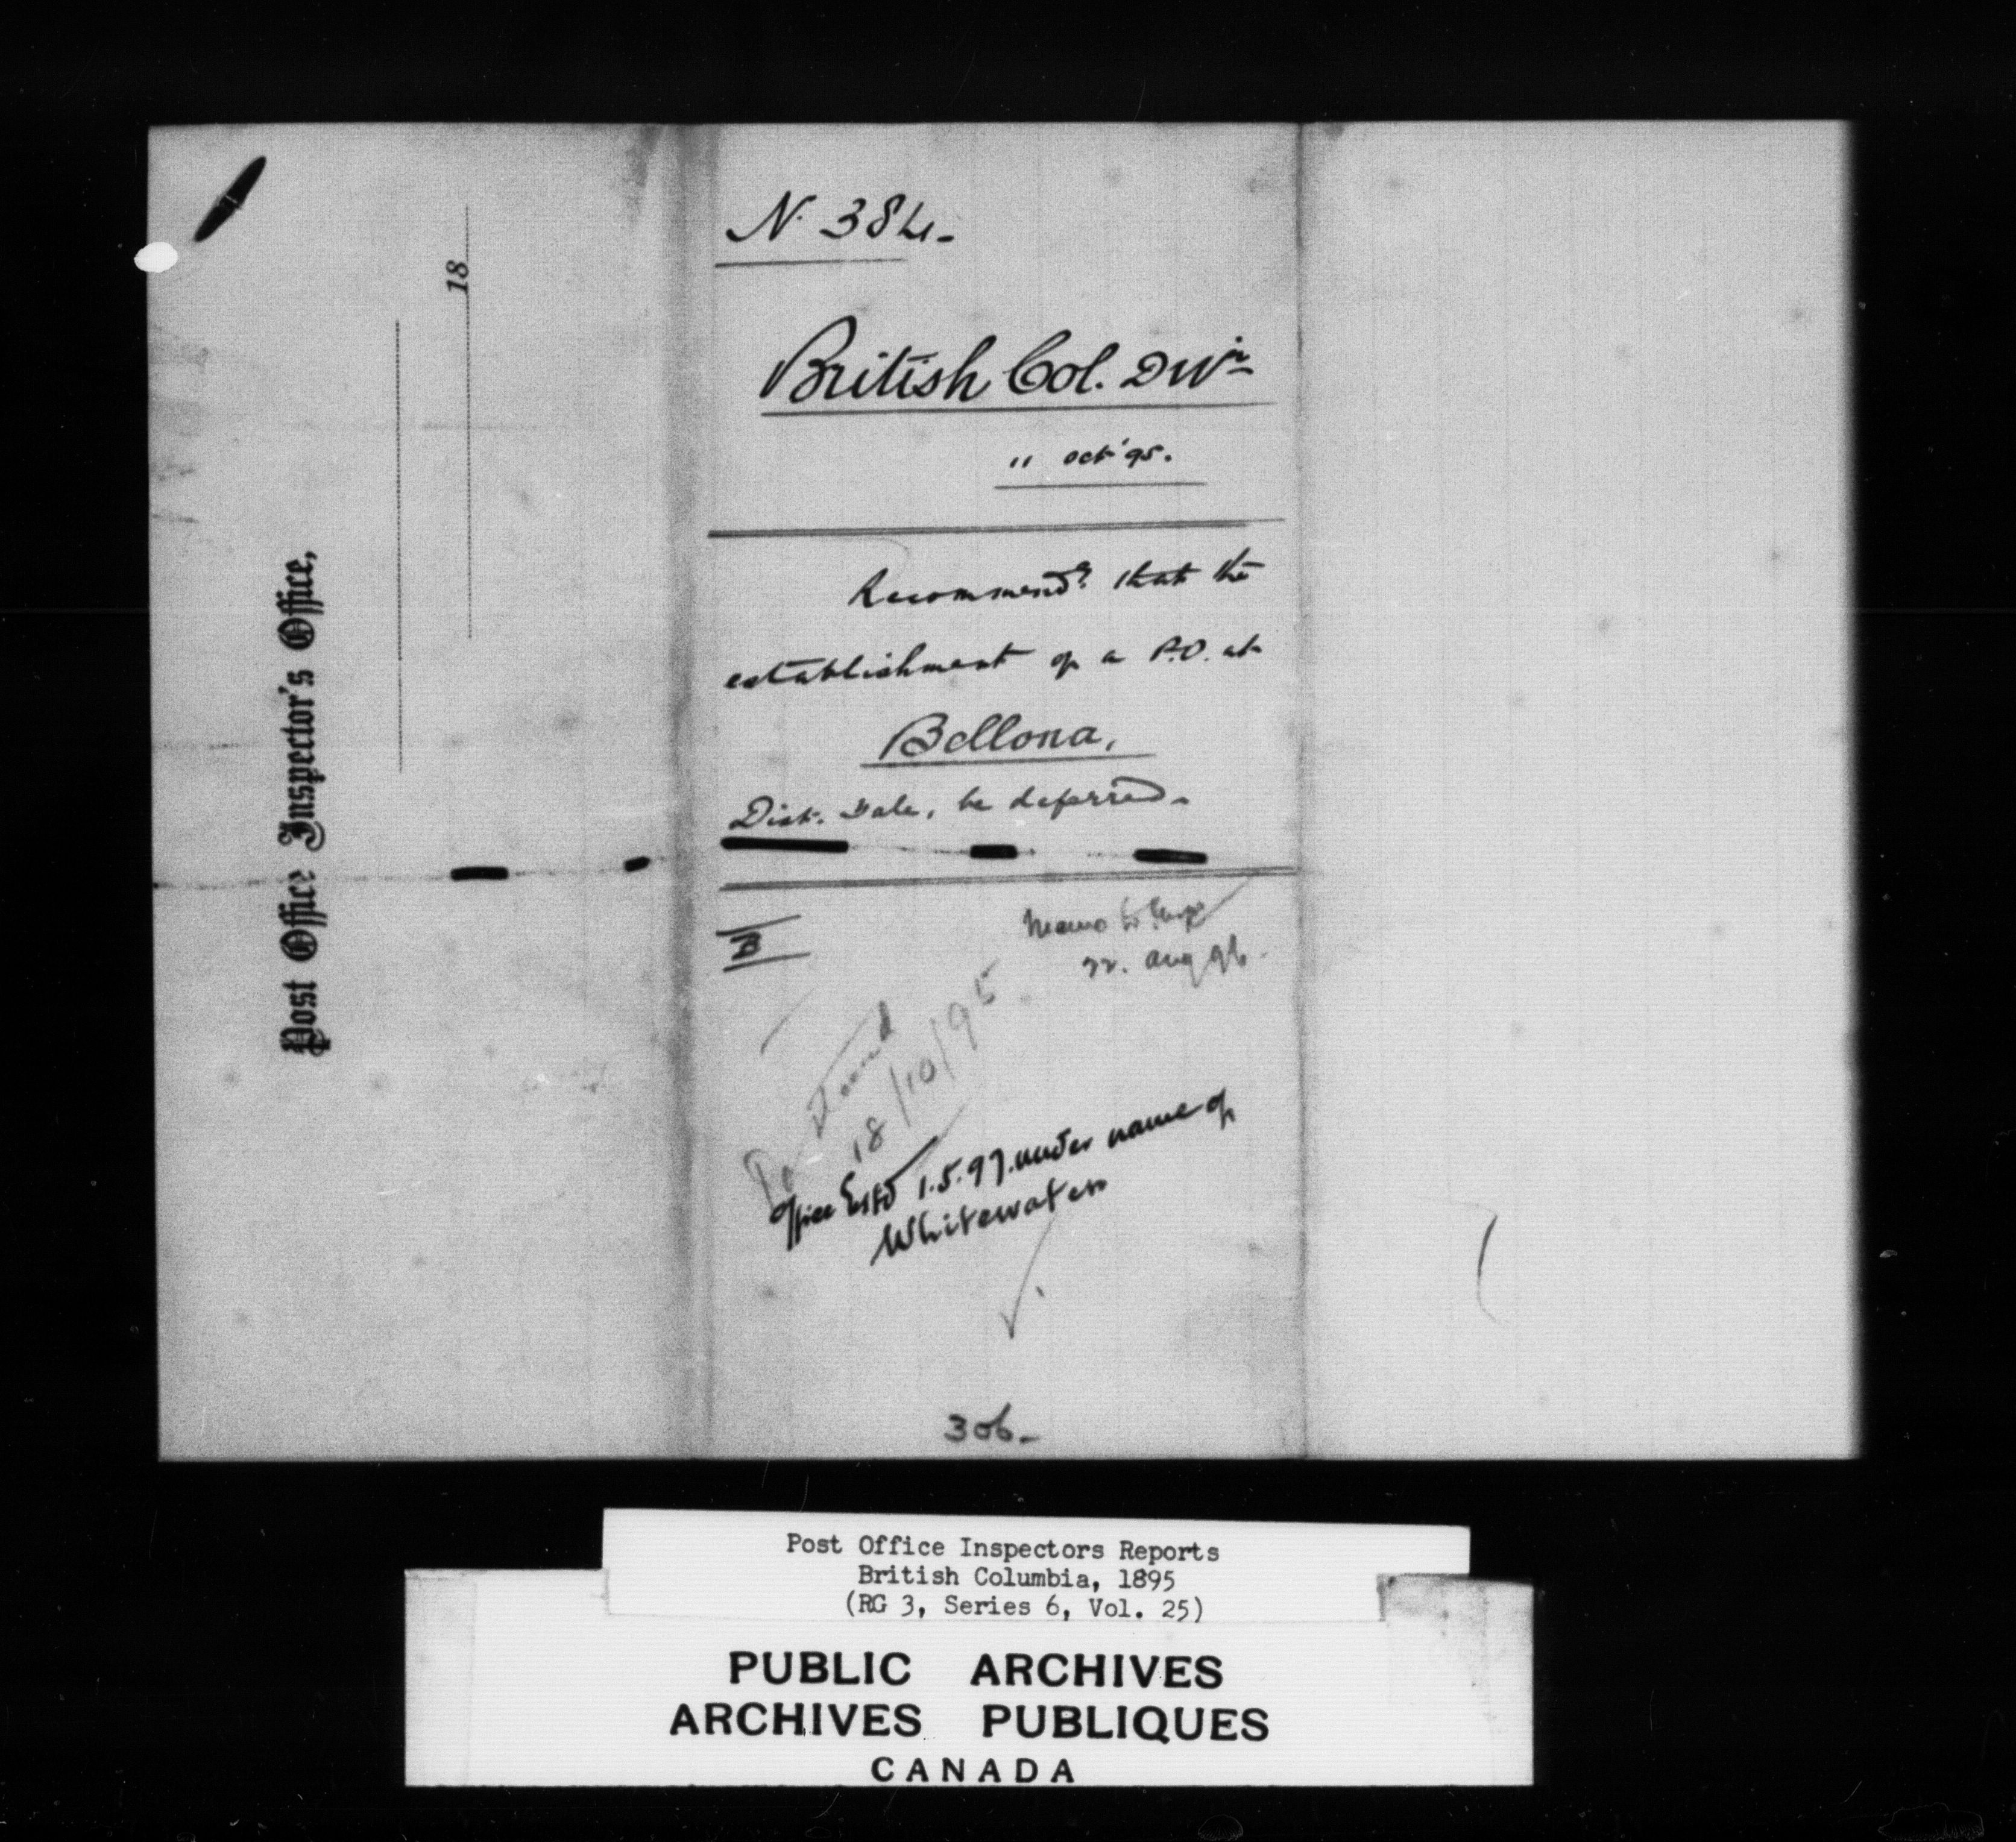 Post Office Inspector's Office,
18
N. 384.
British Col. Divn
11 Oct '95.
Recommendg that the
establishment of a P.O. at
Bellona,
Dist. Yale, be deferred.
B
Memo to Insp
22. Aug 96.
18/10/95
Office Estd 1.5.97. under name of
Whitewater
306.
Post Office Inspectors Reports
British Columbia, 1895
(RG 3, Series 6, Vol. 25)
PUBLIC ARCHIVES
ARCHIVES PUBLIQUES
CANADA